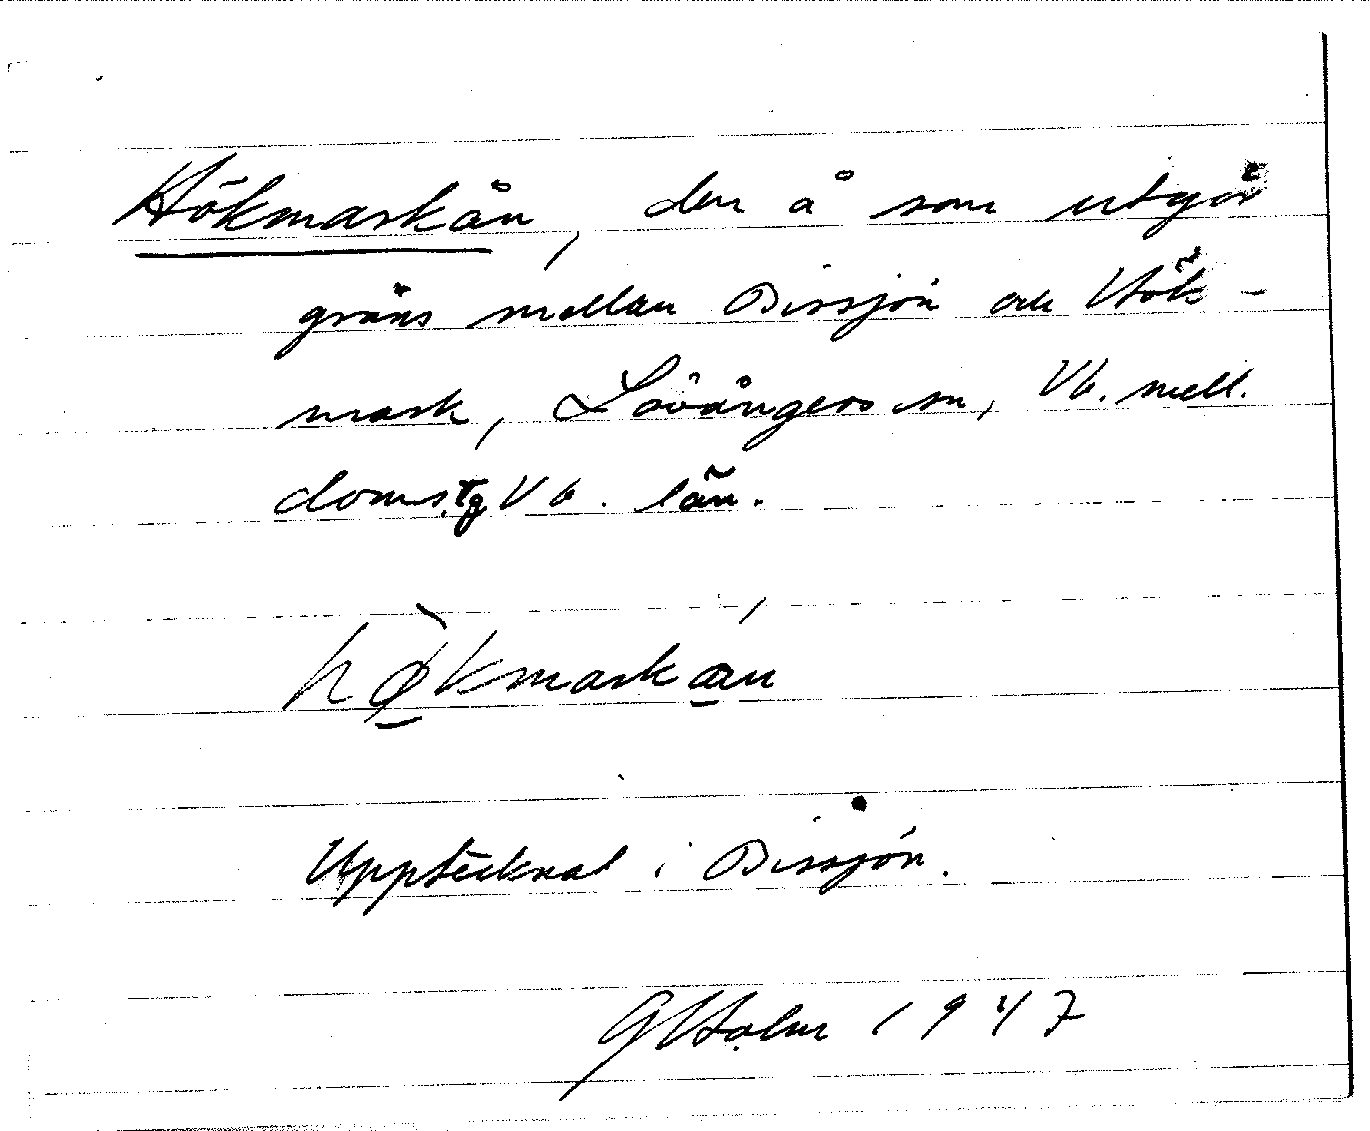 Hökmarkån, den å som utgör
gräns mellan Bissjön och Hök-
mark, Lövångers sn, Vb. mell.
doms.tg Vb. län.
hø̀kmarkán
Upptecknat i Bissjön.
G Holm 1947